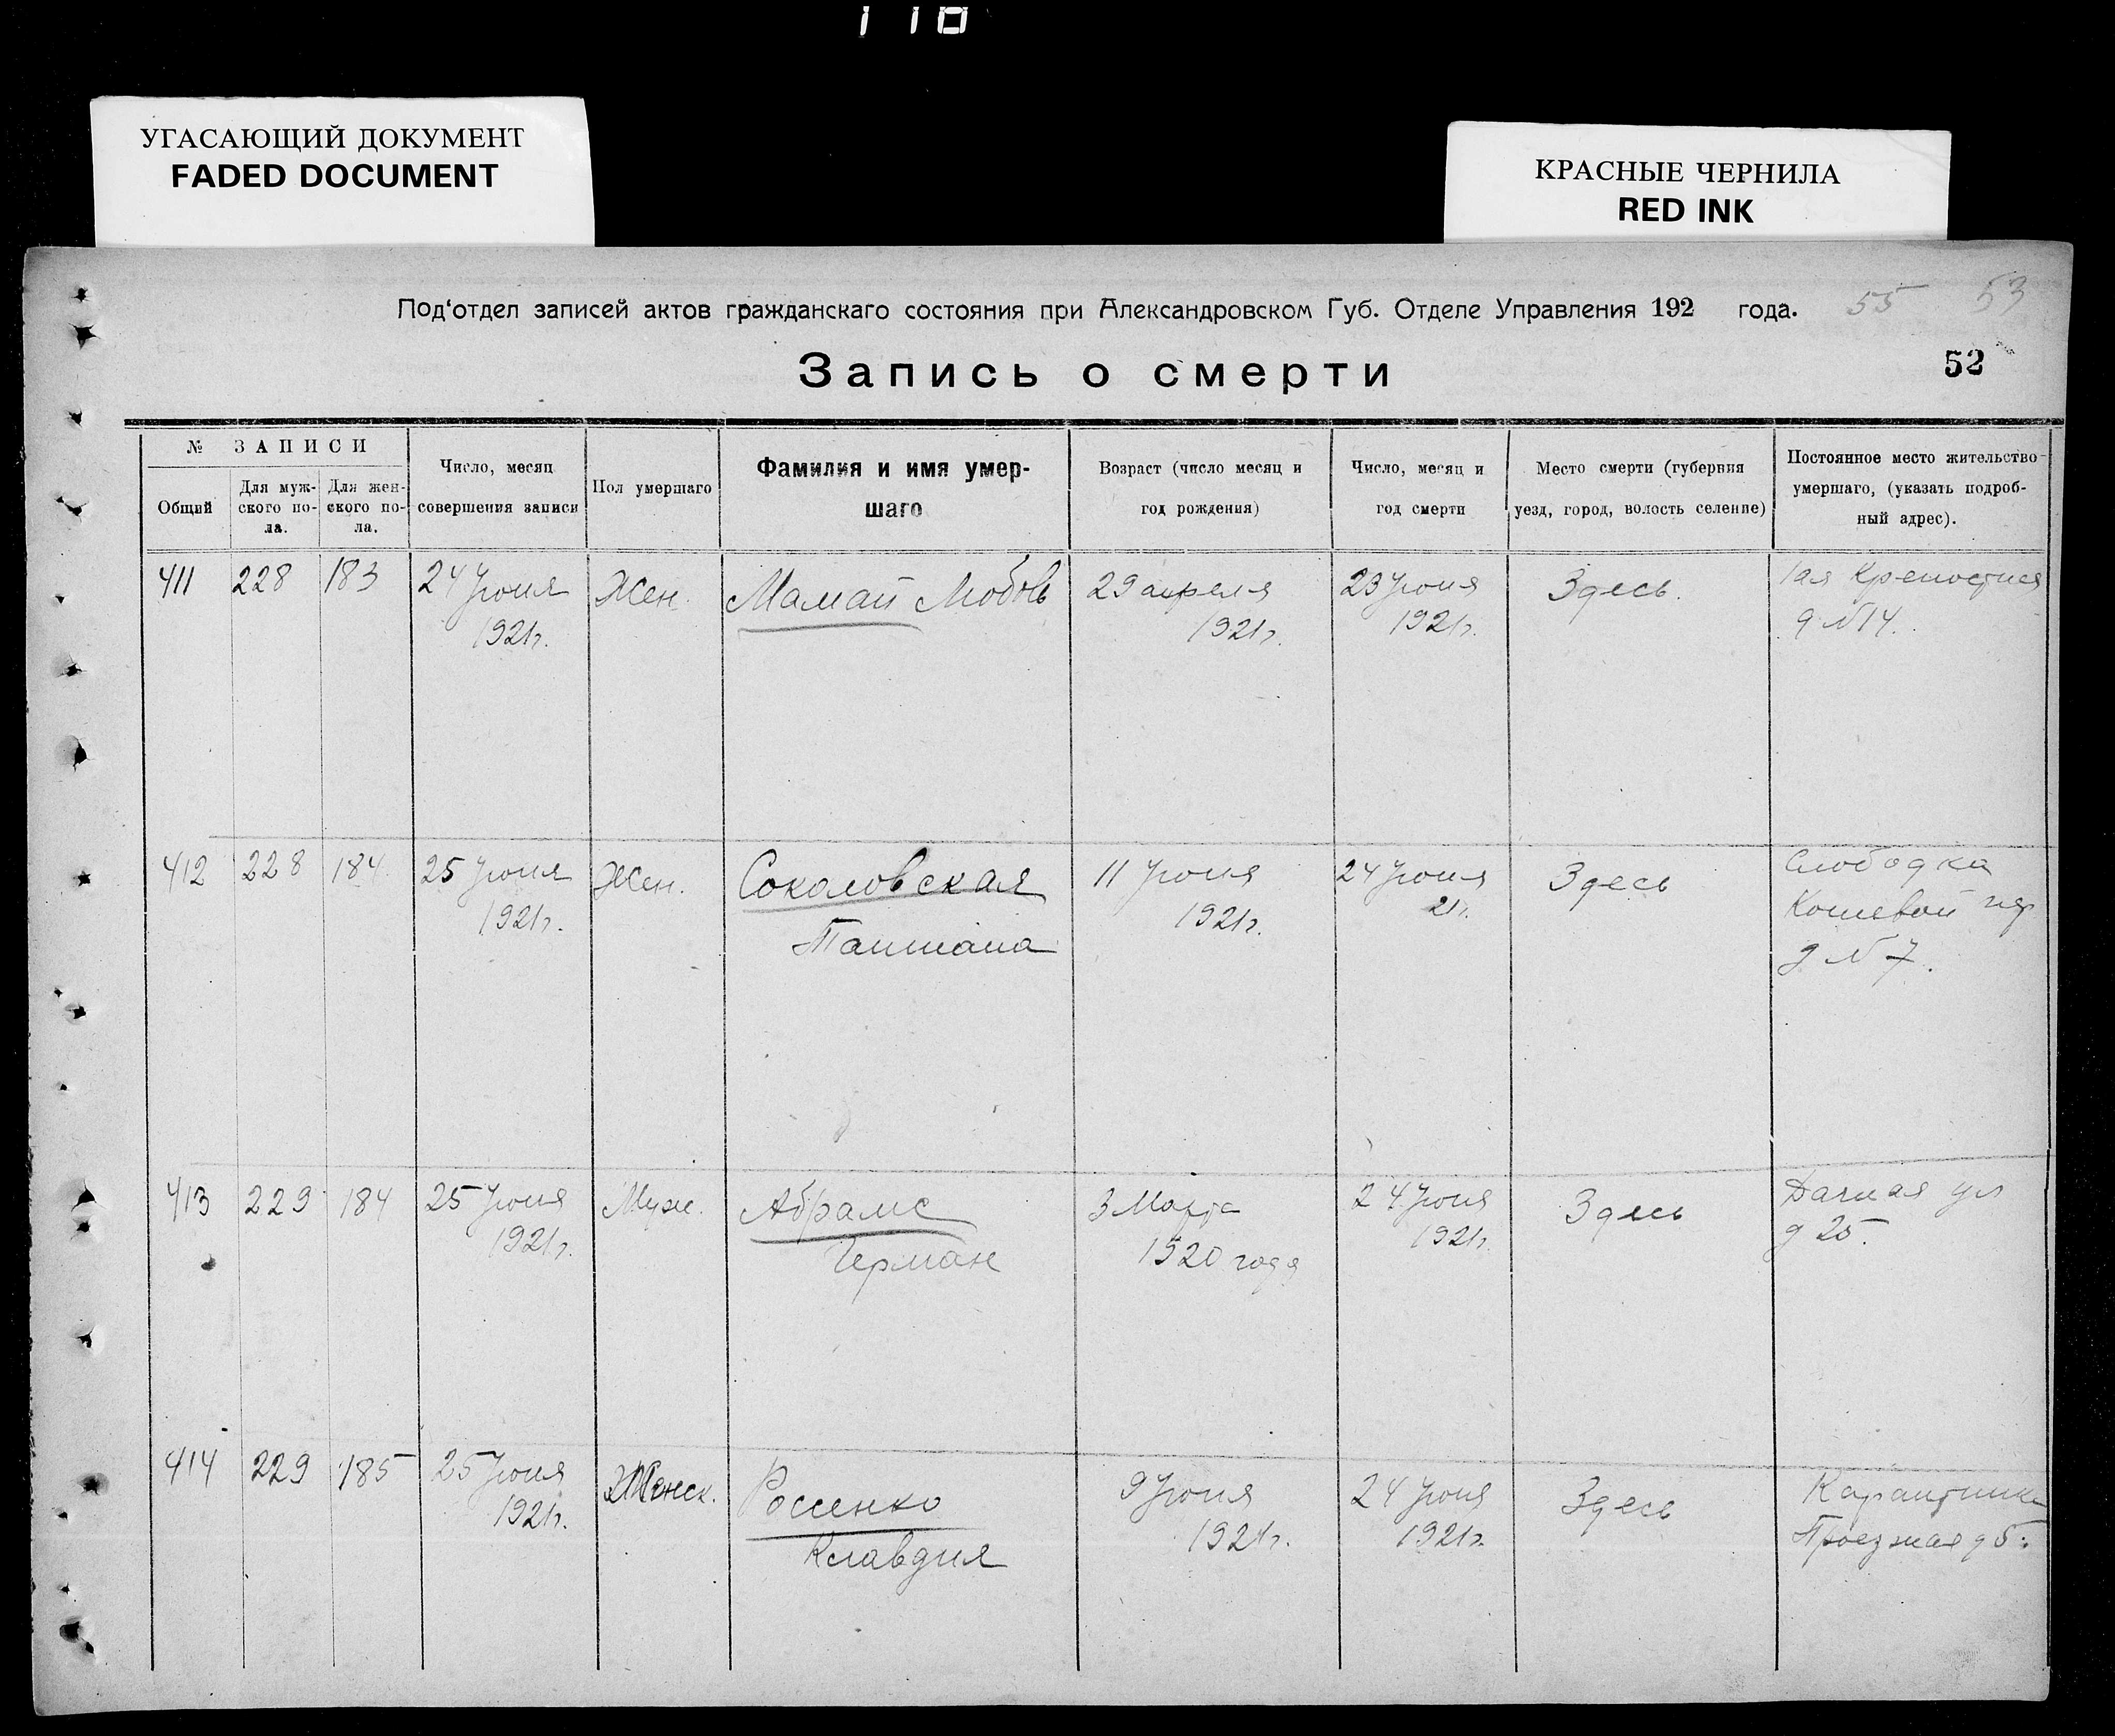 118
УГАСАЮЩИЙ ДОКУМЕНТ
FADED DOCUMENT
КРАСНЫЕ ЧЕРНИЛА
RED INK
Под'отдел записей актов гражданскаго состояния при Александровском Губ. Отделе Управления 192 года.
55 53
Запись о смерти
52
№ ЗАПИСИ
Общий
Для муж-
ского по-
ла.
Для жен-
ского по-
ла.
Число, месяц
совершения записи
Пол умершаго
Фамилия и имя умер-
шаго
Возраст (число месяц и
год рождения)
Число, месяц и
год смерти
Место смерти (губерния
уезд, город, волость селение)
Постоянное место жительство
умершаго, (указать подроб-
ный адрес).
411 228 183
24 Июня
1921г.
Жен.
Мамай Любовь
29 апреля
1921г.
23 Июня
1921г.
Здесь.
1ая Крепостная
д №14.
412 228 184
25 Июня
1921г.
Жен.
Соколовская
Татиана
11 Июня
1921г.
24 Июня
21г.
Здесь
Слободка
Кошевой пер
д №7.
413 229 184
25 Июня
1921г.
Муж.
Абрамс
Герман
3 Марта
1920 года
24 Июня
1921г.
Здесь
Дачная ул
д 25.
414 229 185
25 Июня
1921г.
Женск.
Россенко
Клавдия
9 Июня
1921г.
24 Июня
1921г.
Здесь
Карантинка
Проезжая д 5.